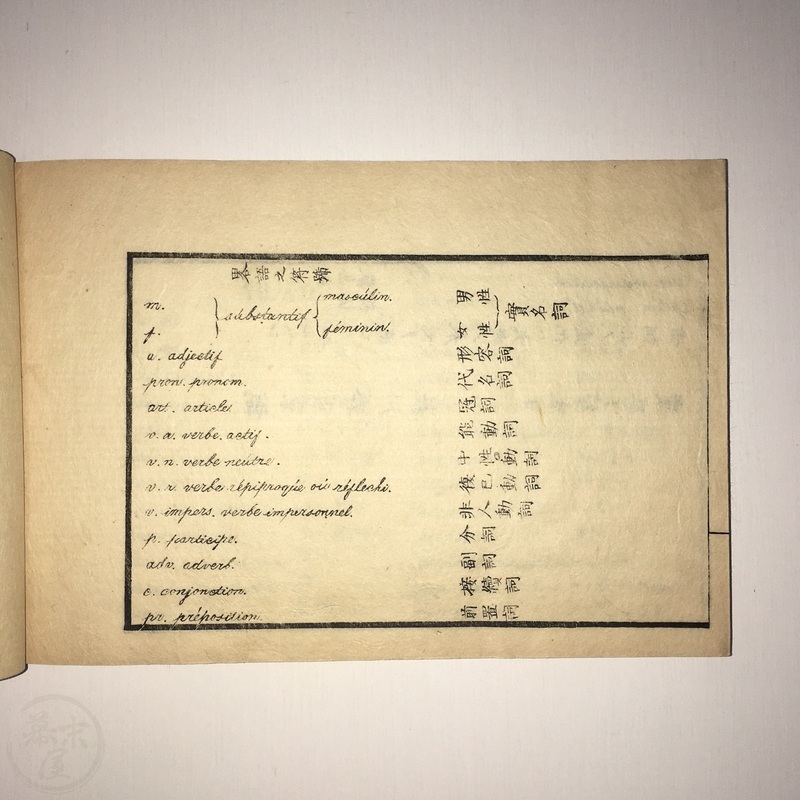 畧語之符號
m. } súbstantif { mascúlin. 男性 } 實名詞
f. féminin. 女性
a. adjectif 形容詞
pron. pronom. 代名詞
art. article 冠詞
v. a. verbe. actif. 能動詞
v. n. verbe neútre. 中性動詞
v. r. verbe répiproqúe oú réflechi. 復已動詞
v. impers. verbe impersonnel. 非人動詞
p. participe. 分詞
adv. adverb. 副詞
c. conjonction. 接續詞
pr. préposition. 前置詞